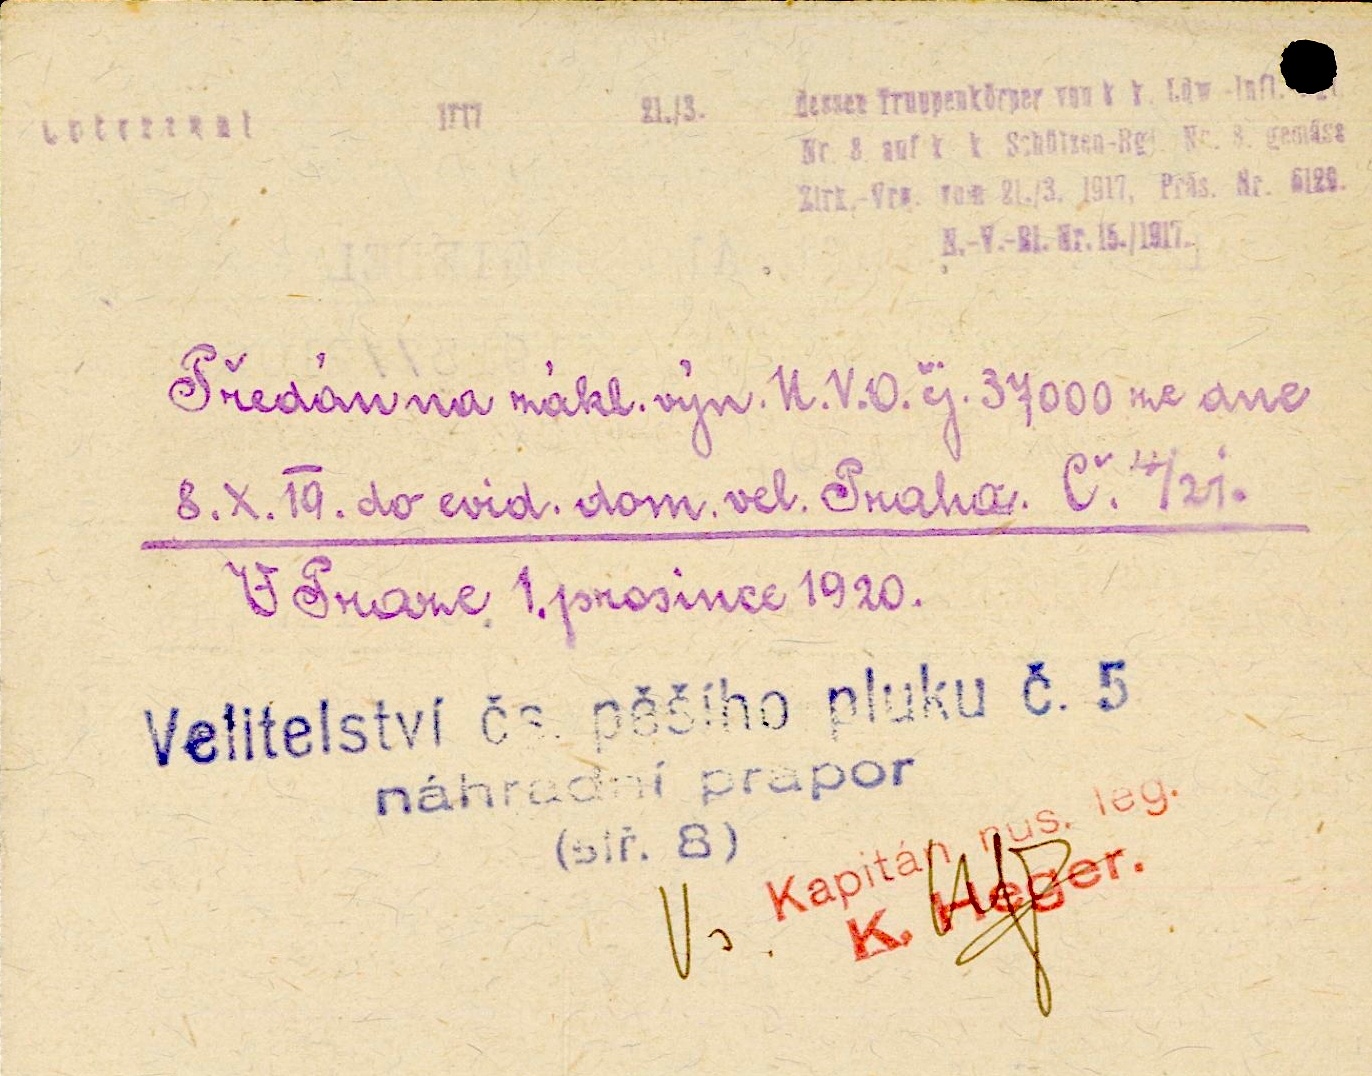 1917 21./3. dessen Truppenkörper von k. k. Ldw.-Inft.
Nr 8 auf k k Schützen-Rgt. Nr. 8. gemäss
Zirk.-Vrg. vom 21./3. 1917, Präs. Nr. 6129.
N.-V.-Bl. Nr. 15./1917.
Předán na zákl. výn. N.V.O. čj. 37000 ze dne
8. X. 19. do evid. dom. vel. Praha. Č. 4/21.
V Praze, 1. prosince 1920.
Velitelství čs. pěšího pluku č. 5
náhradní prapor
(stř. 8)
Kapitán rus. leg.
K. Heger.